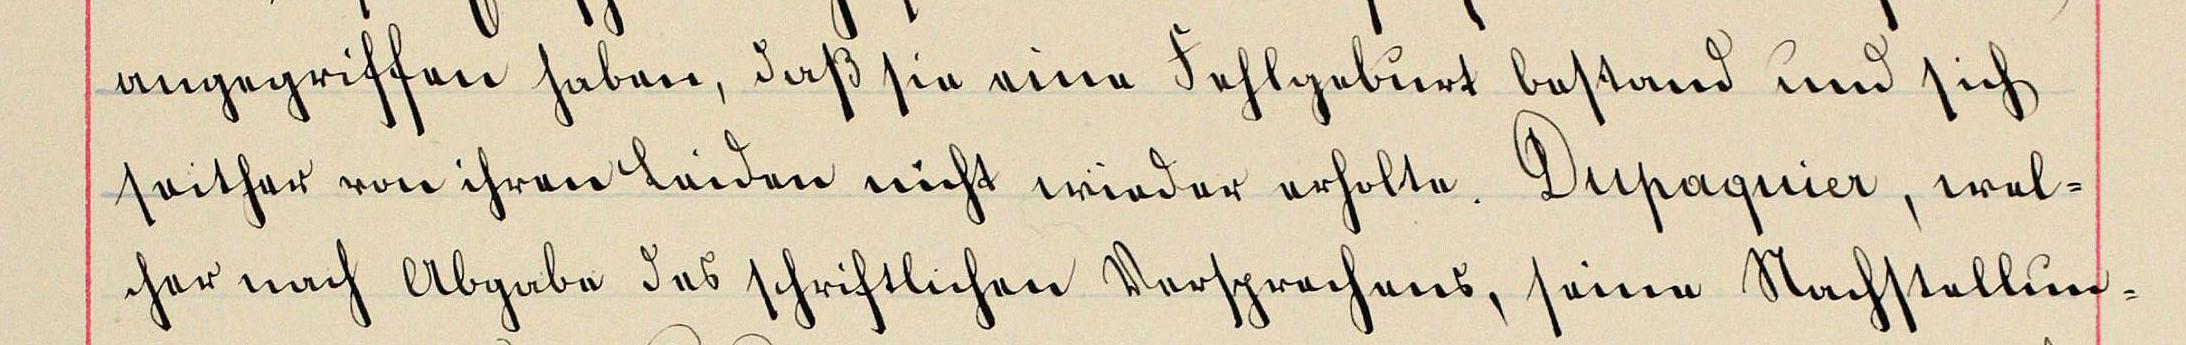 angegriffen haben, daß sie eine Fehlgeburt bestand und sich
seither von ihren Leiden nicht wieder erholte. Dupaquier, wel=
cher nach Abgabe des schriftlichen Versprechens, seine Nachstellun=